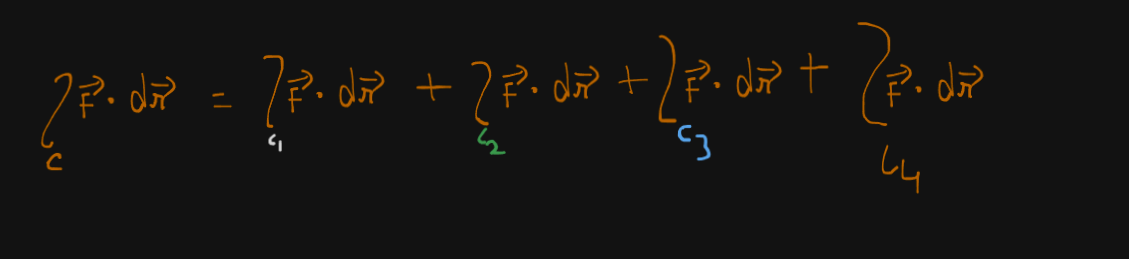 ∫_C F⃗ · dr⃗ = ∫_C₁ F⃗ · dr⃗ + ∫_C₂ F⃗ · dr⃗ + ∫_C₃ F⃗ · dr⃗ + ∫_C₄ F⃗ · dr⃗